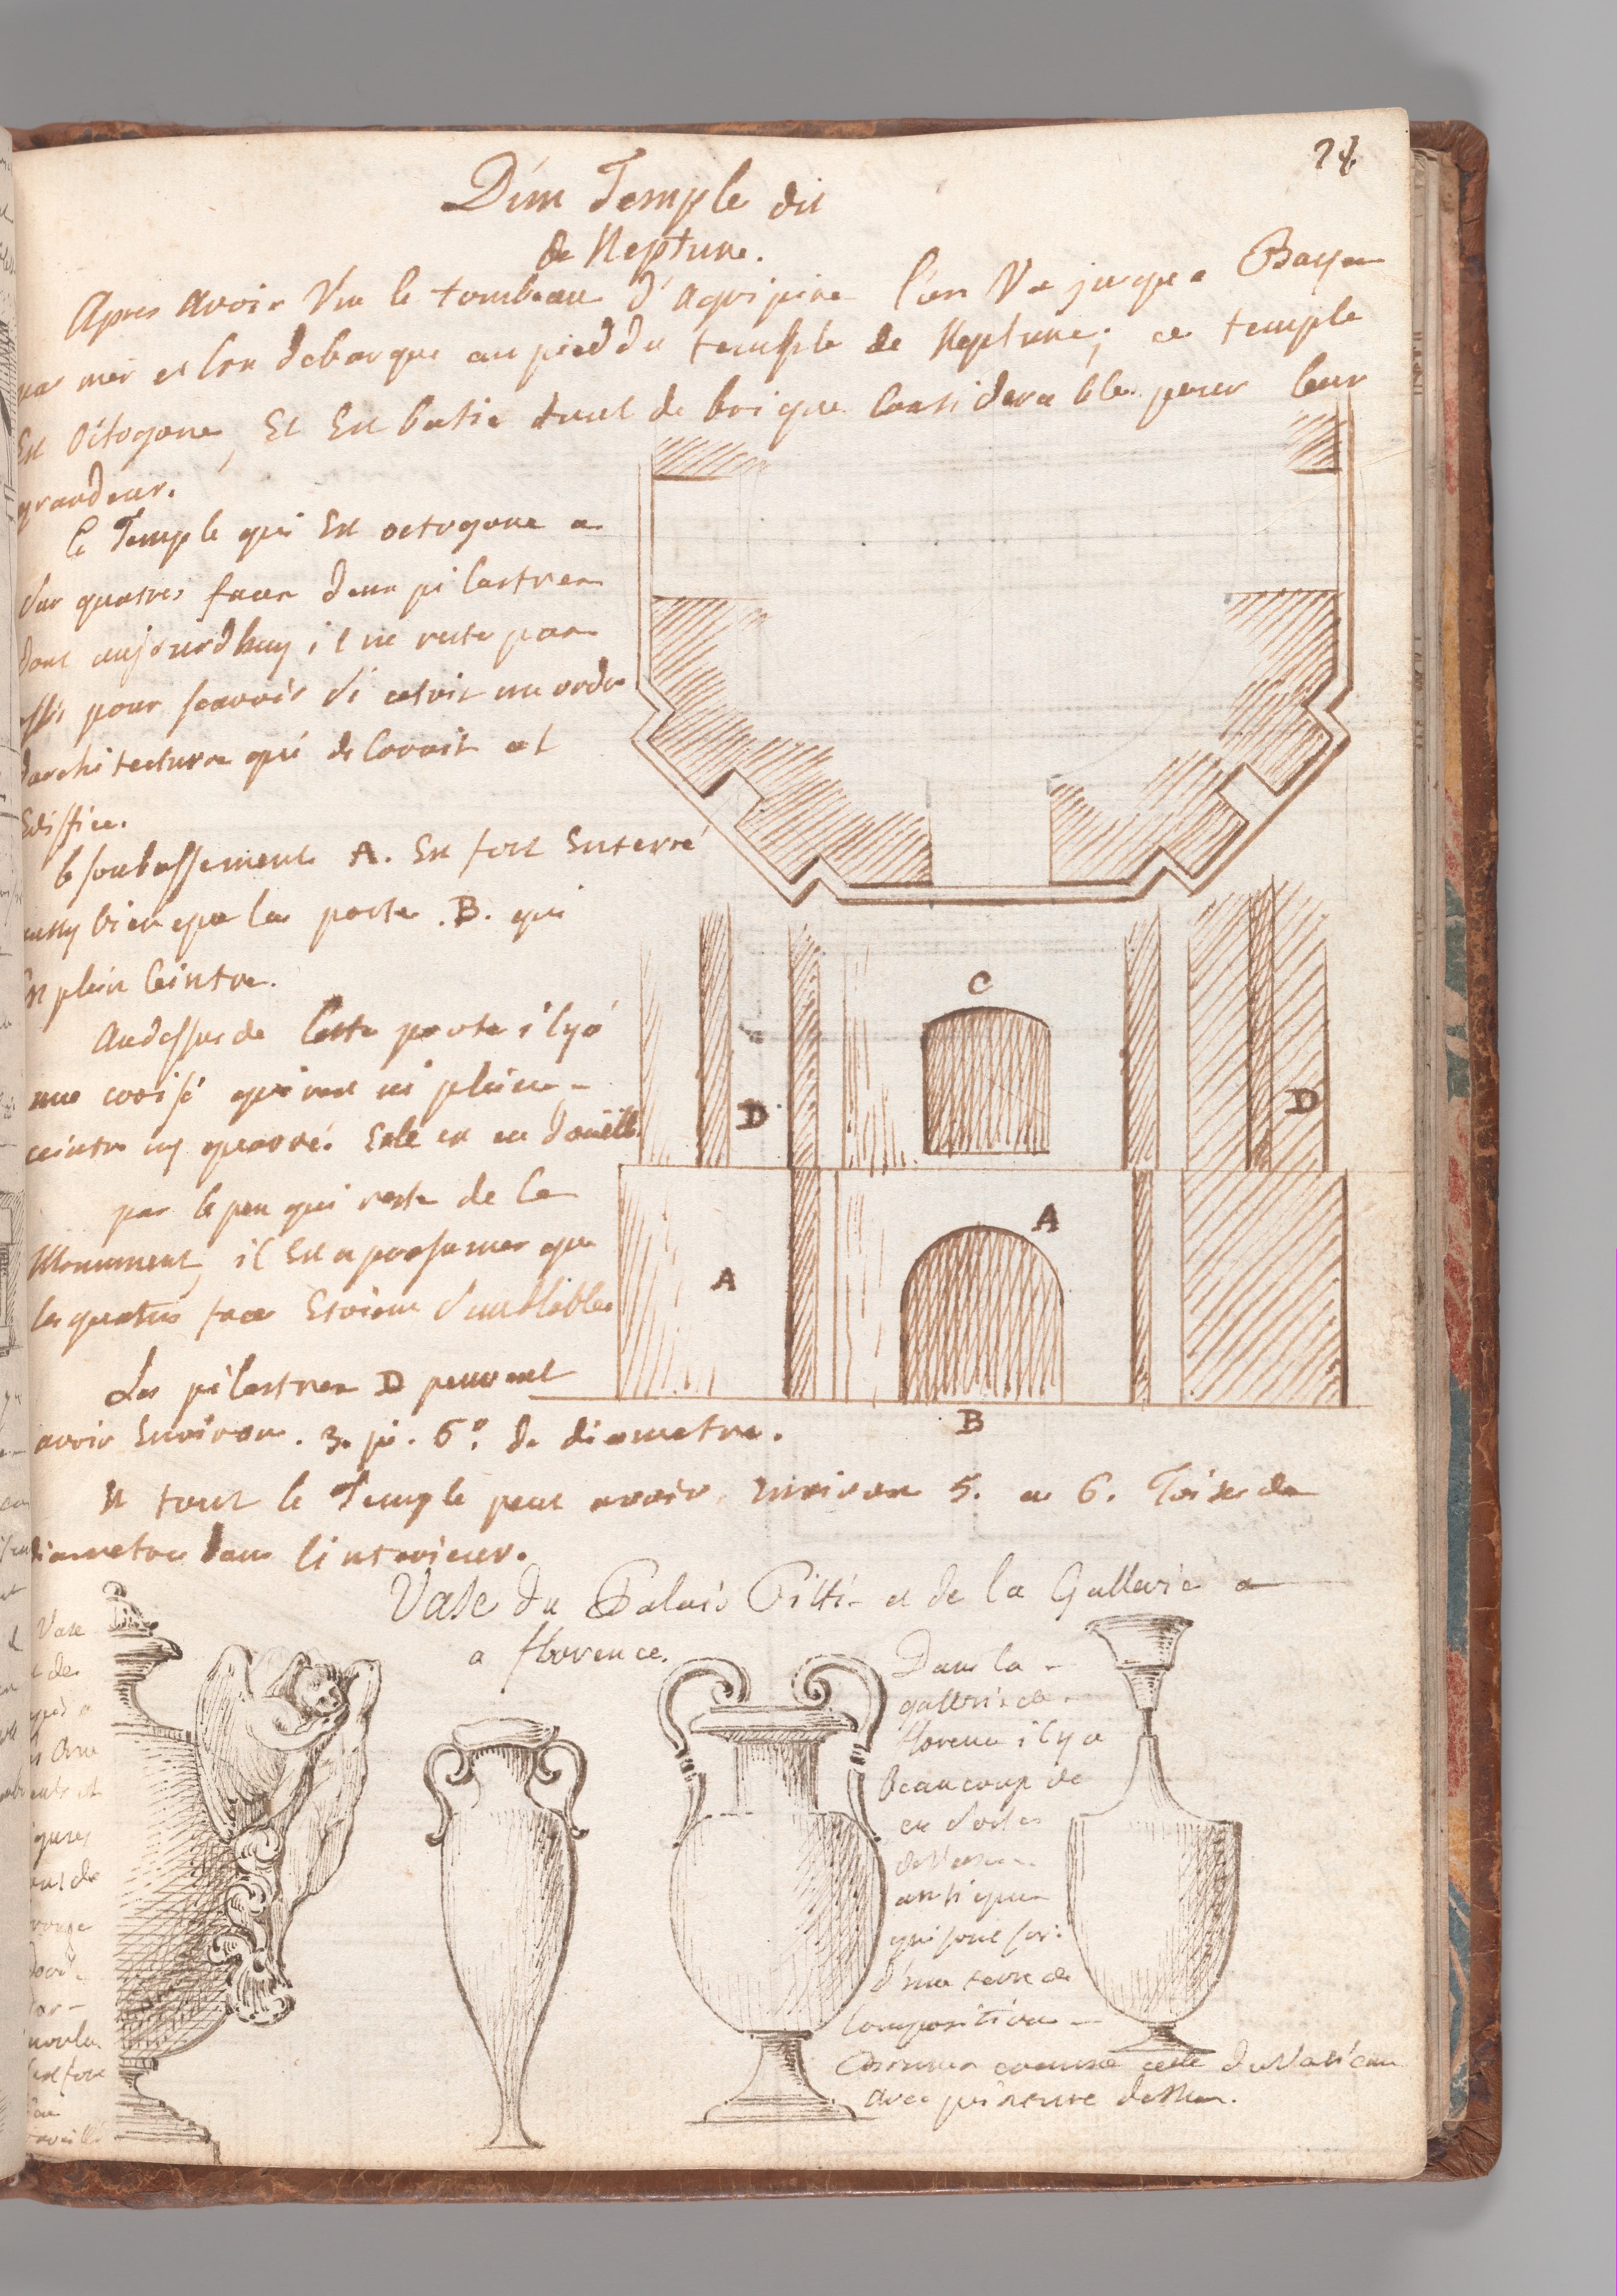 24
D'un Temple dit
de Neptune.
Apres avoir Vu le tombeau d'Agripine l'on Va jusque a Baye
par mer et l'on debarque au pied du temple de Neptune; ce temple
Est Octogone, Et Est batie tout de brique Considerable pour leur
grandeur.
Ce Temple qui Est octogone a
sur quatres faces deux pilastres
dont aujourdhuy il ne reste pas
assés pour scavoir si cetoit un ordre
darchitecture qui decoroit cet
Ediffice.
le soubassement A. Est fort Enterré
aussy bien que la porte .B. qui
Est plein Ceintre.
Audessus de Cette porte il y a
une croisé qui nest ni pleine
ceintre ny quarré. Elle est en douelle
par le peu qui reste de Ce
Monument, il Est a presumer que
les quatres faces Etoient semblables
Les pilastres D peuvent
avoir Environ . 3. pi. 6° de diametre.
Et tout le Temple peut avoir Environ 5. a 6. Toises de
diametre dans l'interieur.
C
D
D
A
A
B
Vase du Palais Pitti et de la Gallerie a
a florence.
Dans la
gallerie de
florence il y a
beaucoup de
ces sortes
de Vases
antiques
qui sont fait
d'une terre de
Composition
Comme celle du Vatican
avec peinture dessus.
Vase
et de